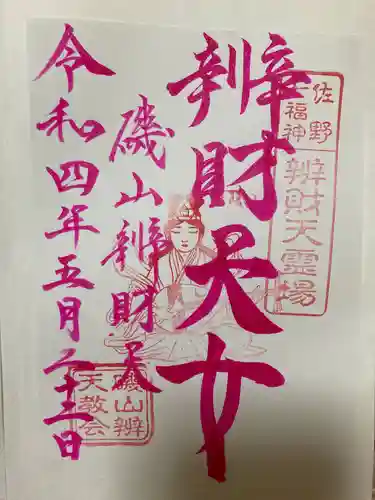 佐野
七福神
辨財天霊場
辨財天女
磯山辨財天
令和四年五月二十三日
磯山辨
天教会